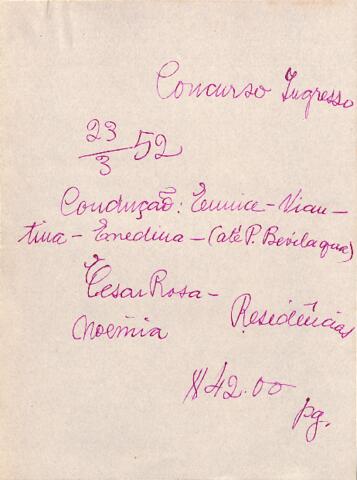 Concurso Ingresso
23/3 52
Condução: Eunice - Vian-
tina - Enedina - (até P. Bevilaqua)
e Cesar Rosa -
Noêmia Residências
$42.00
pg.